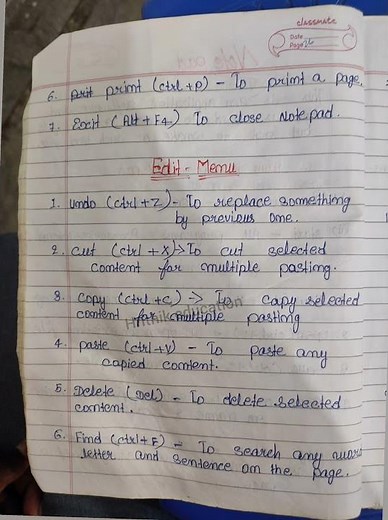 classmate
Date
Page 26
6. print (ctrl+P) - To print a page.
7. Exit (Alt + F4) To close Notepad.
Edit - Menu
1. undo (ctrl+Z) - To replace something
by previous one.
2. cut (ctrl +X) -> To cut selected
content for multiple pasting.
3. copy (ctrl+C) -> To capy selected
content for multiple pasting
Hrithik education
4. paste (ctrl+V) - To paste any
copied content.
5. Delete (Del) - To delete selected
content.
6. Find (ctrl+F) - To search any word
letter and sentence on the page.